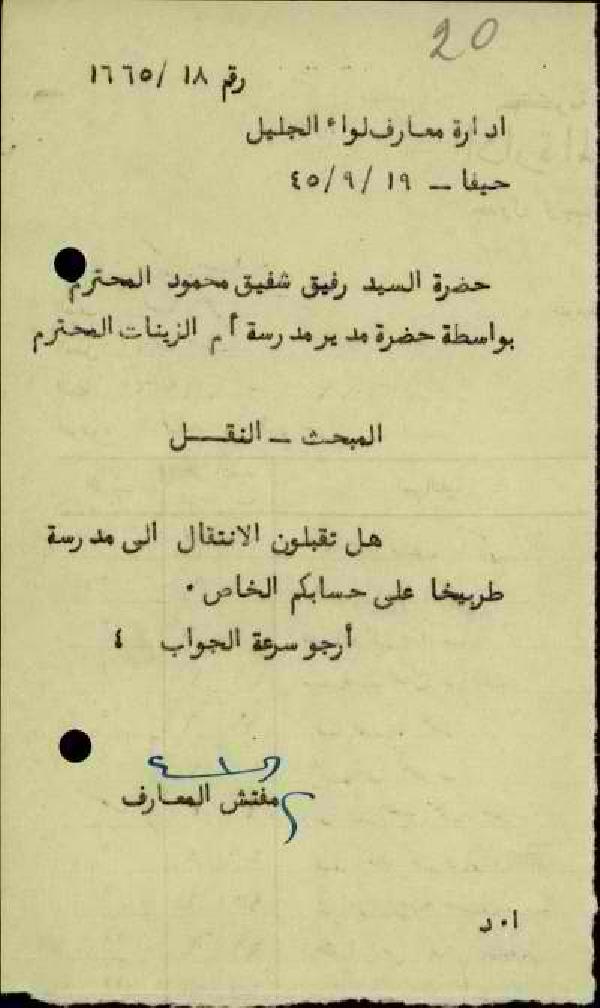 20
رقم ١٨ /١٦٦٥
ادارة معارف لواء الجليل
حيفا – ١٩ /٩ /٤٥
حضرة السيد رفيق شفيق محمود المحترم
بواسطة حضرة مدير مدرسة أم الزينات المحترم
المبحث – النقل
هل تقبلون الانتقال الى مدرسة
طربيخا على حسابكم الخاص ٠
أرجو سرعة الجواب ٤
مفتش المعارف
ا٠ د